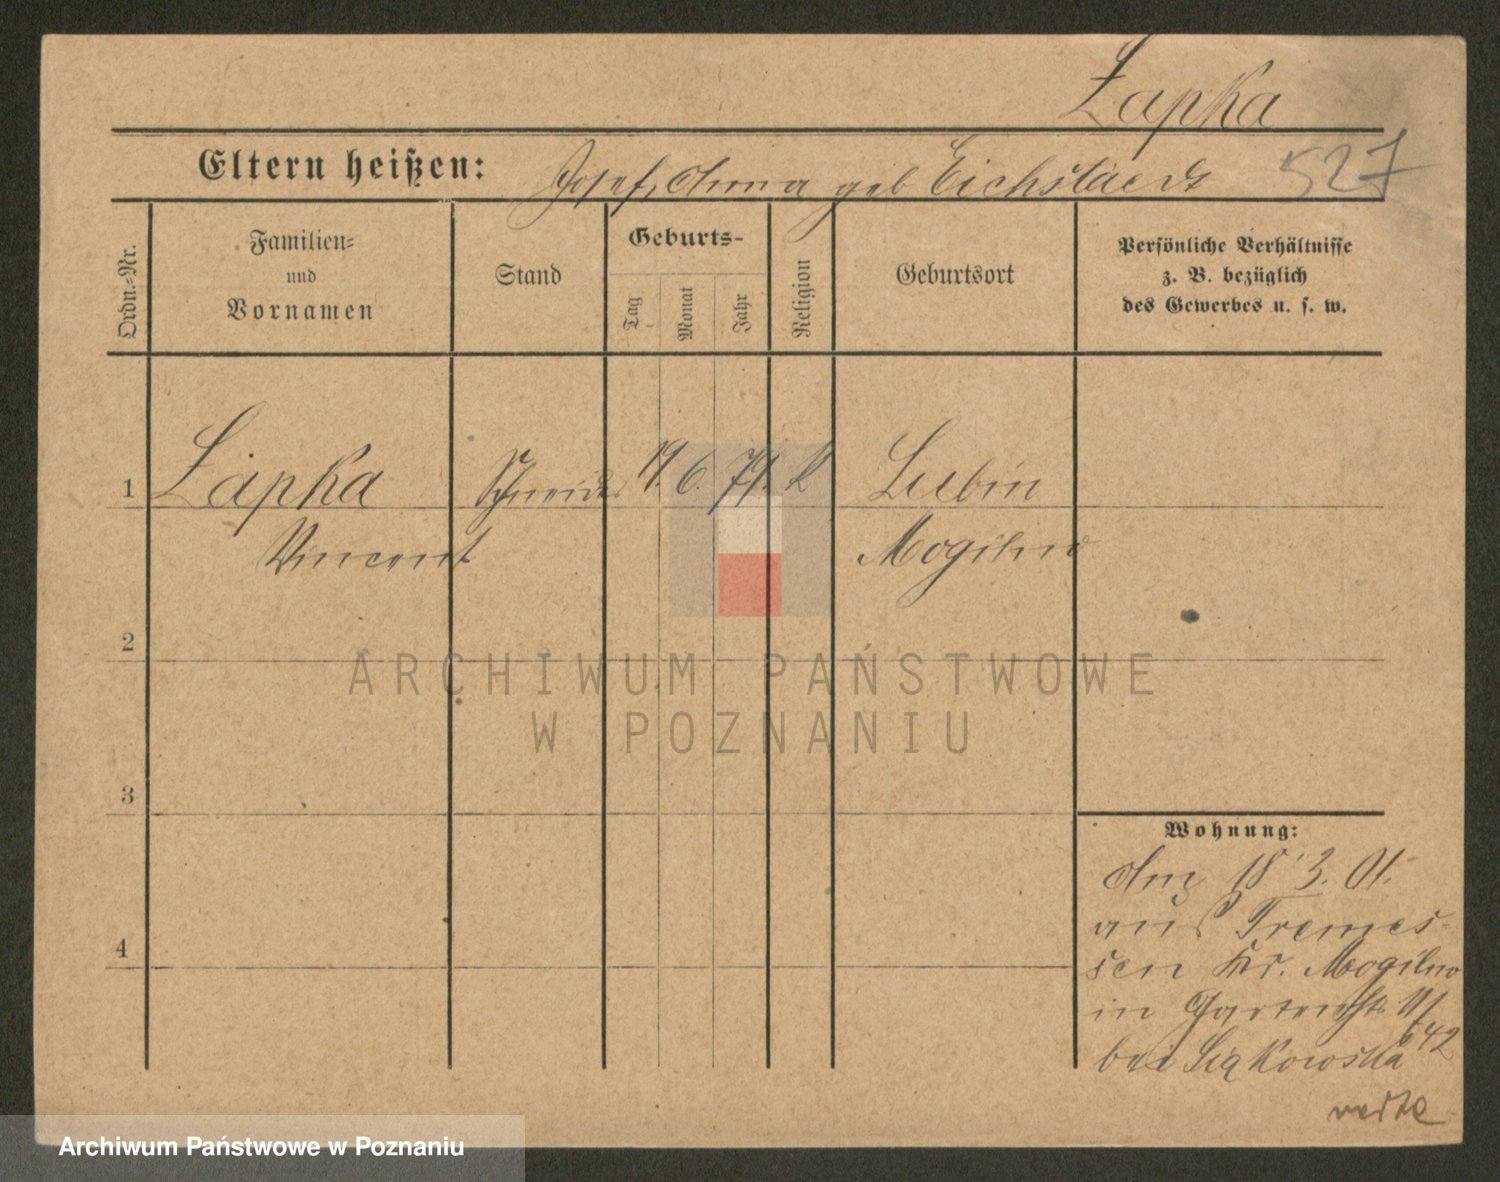 Łapka
Eltern heißen: Josef, Anna geb Eichstaedt 527
Ordn.-Nr.
Familien-
und
Vornamen
Stand
Geburts-
Tag
Monat
Jahr
Religion
Geburtsort
Persönliche Verhältnisse
z. B. bezüglich
des Gewerbes u. s. w.
1 Łapka Schneider 19. 6. 79. k Lubin
Vincent Mogilno
2
3
4
Wohnung:
Am 18 3. 01.
aus Tremes-
sen Kr. Mogilno
in Gartenstr.
bei
verte
ARCHIWUM PAŃSTWOWE
W POZNANIU
Archiwum Państwowe w Poznaniu